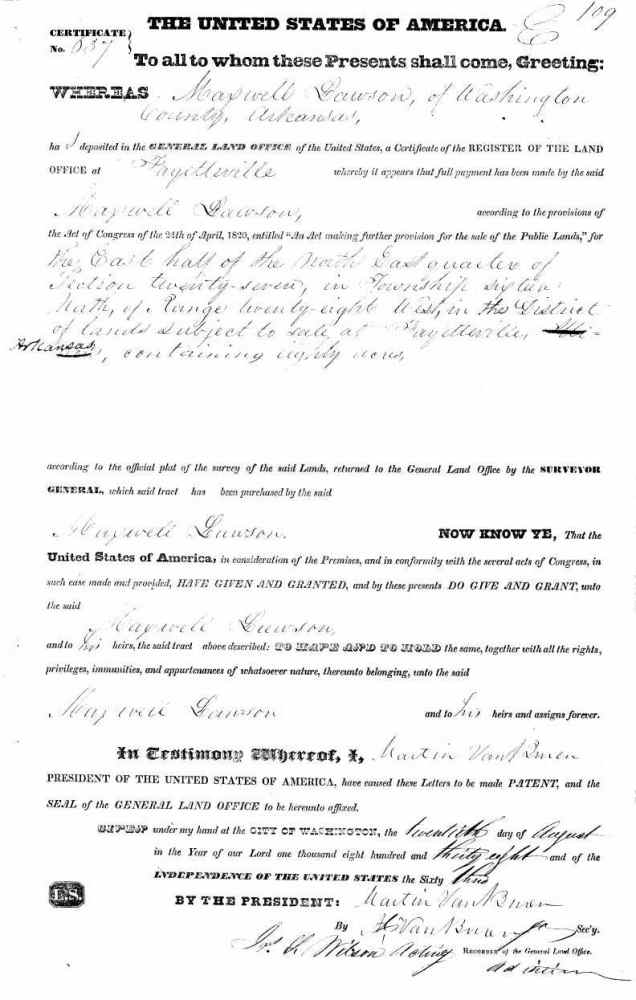 109
THE UNITED STATES OF AMERICA.
CERTIFICATE
No. 637
To all to whom these Presents shall come, Greeting:
WHEREAS Maxwell Dawson, of Washington
County, Arkansas,
ha s deposited in the GENERAL LAND OFFICE of the United States, a Certificate of the REGISTER OF THE LAND
OFFICE at Fayetteville whereby it appears that full payment has been made by the said
Maxwell Dawson, according to the provisions of
the Act of Congress of the 24th of April, 1820, entitled "An Act making further provision for the sale of the Public Lands," for
the East half of the North East quarter of
Section twenty-seven, in Township sixteen
North, of Range twenty-eight West, in the District
of lands subject to sale at Fayetteville,
Arkansas, containing eighty acres,
according to the official plat of the survey of the said Lands, returned to the General Land Office by the SURVEYOR
GENERAL, which said tract has been purchased by the said
Maxwell Dawson. NOW KNOW YE, That the
United States of America, in consideration of the Premises, and in conformity with the several acts of Congress, in
such case made and provided, HAVE GIVEN AND GRANTED, and by these presents DO GIVE AND GRANT, unto
the said
Maxwell Dawson,
and to his heirs, the said tract above described: TO HAVE AND TO HOLD the same, together with all the rights,
privileges, immunities, and appurtenances of whatsoever nature, thereunto belonging, unto the said
Maxwell Dawson and to his heirs and assigns forever.
In Testimony Whereof, I, Martin Van Buren
PRESIDENT OF THE UNITED STATES OF AMERICA, have caused these Letters to be made PATENT, and the
SEAL of the GENERAL LAND OFFICE to be hereunto affixed.
GIVEN under my hand at the CITY OF WASHINGTON, the twentieth day of August
in the Year of our Lord one thousand eight hundred and thirty eight and of the
INDEPENDENCE OF THE UNITED STATES the Sixty third
L.S.
BY THE PRESIDENT: Martin Van Buren
By Van Buren Jr Sec'y.
Wilson Acting RECORDER of the General Land Office.
ad interim